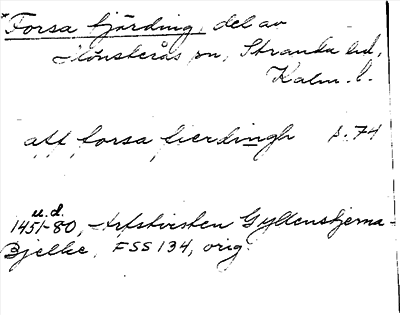 *Forsa fjärding, del av
Mönsterås sn, Stranda hd,
Kalm. l.
att forsa fierdingh s. 74
u. d.
1451-80, Arfstvisten Gyllenstjerna-
Bjelke, FSS 134, orig.